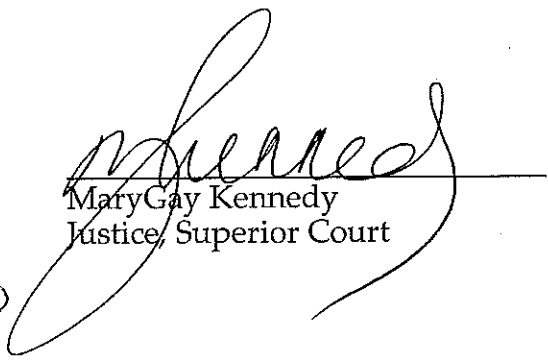 MaryGay Kennedy
Justice, Superior Court